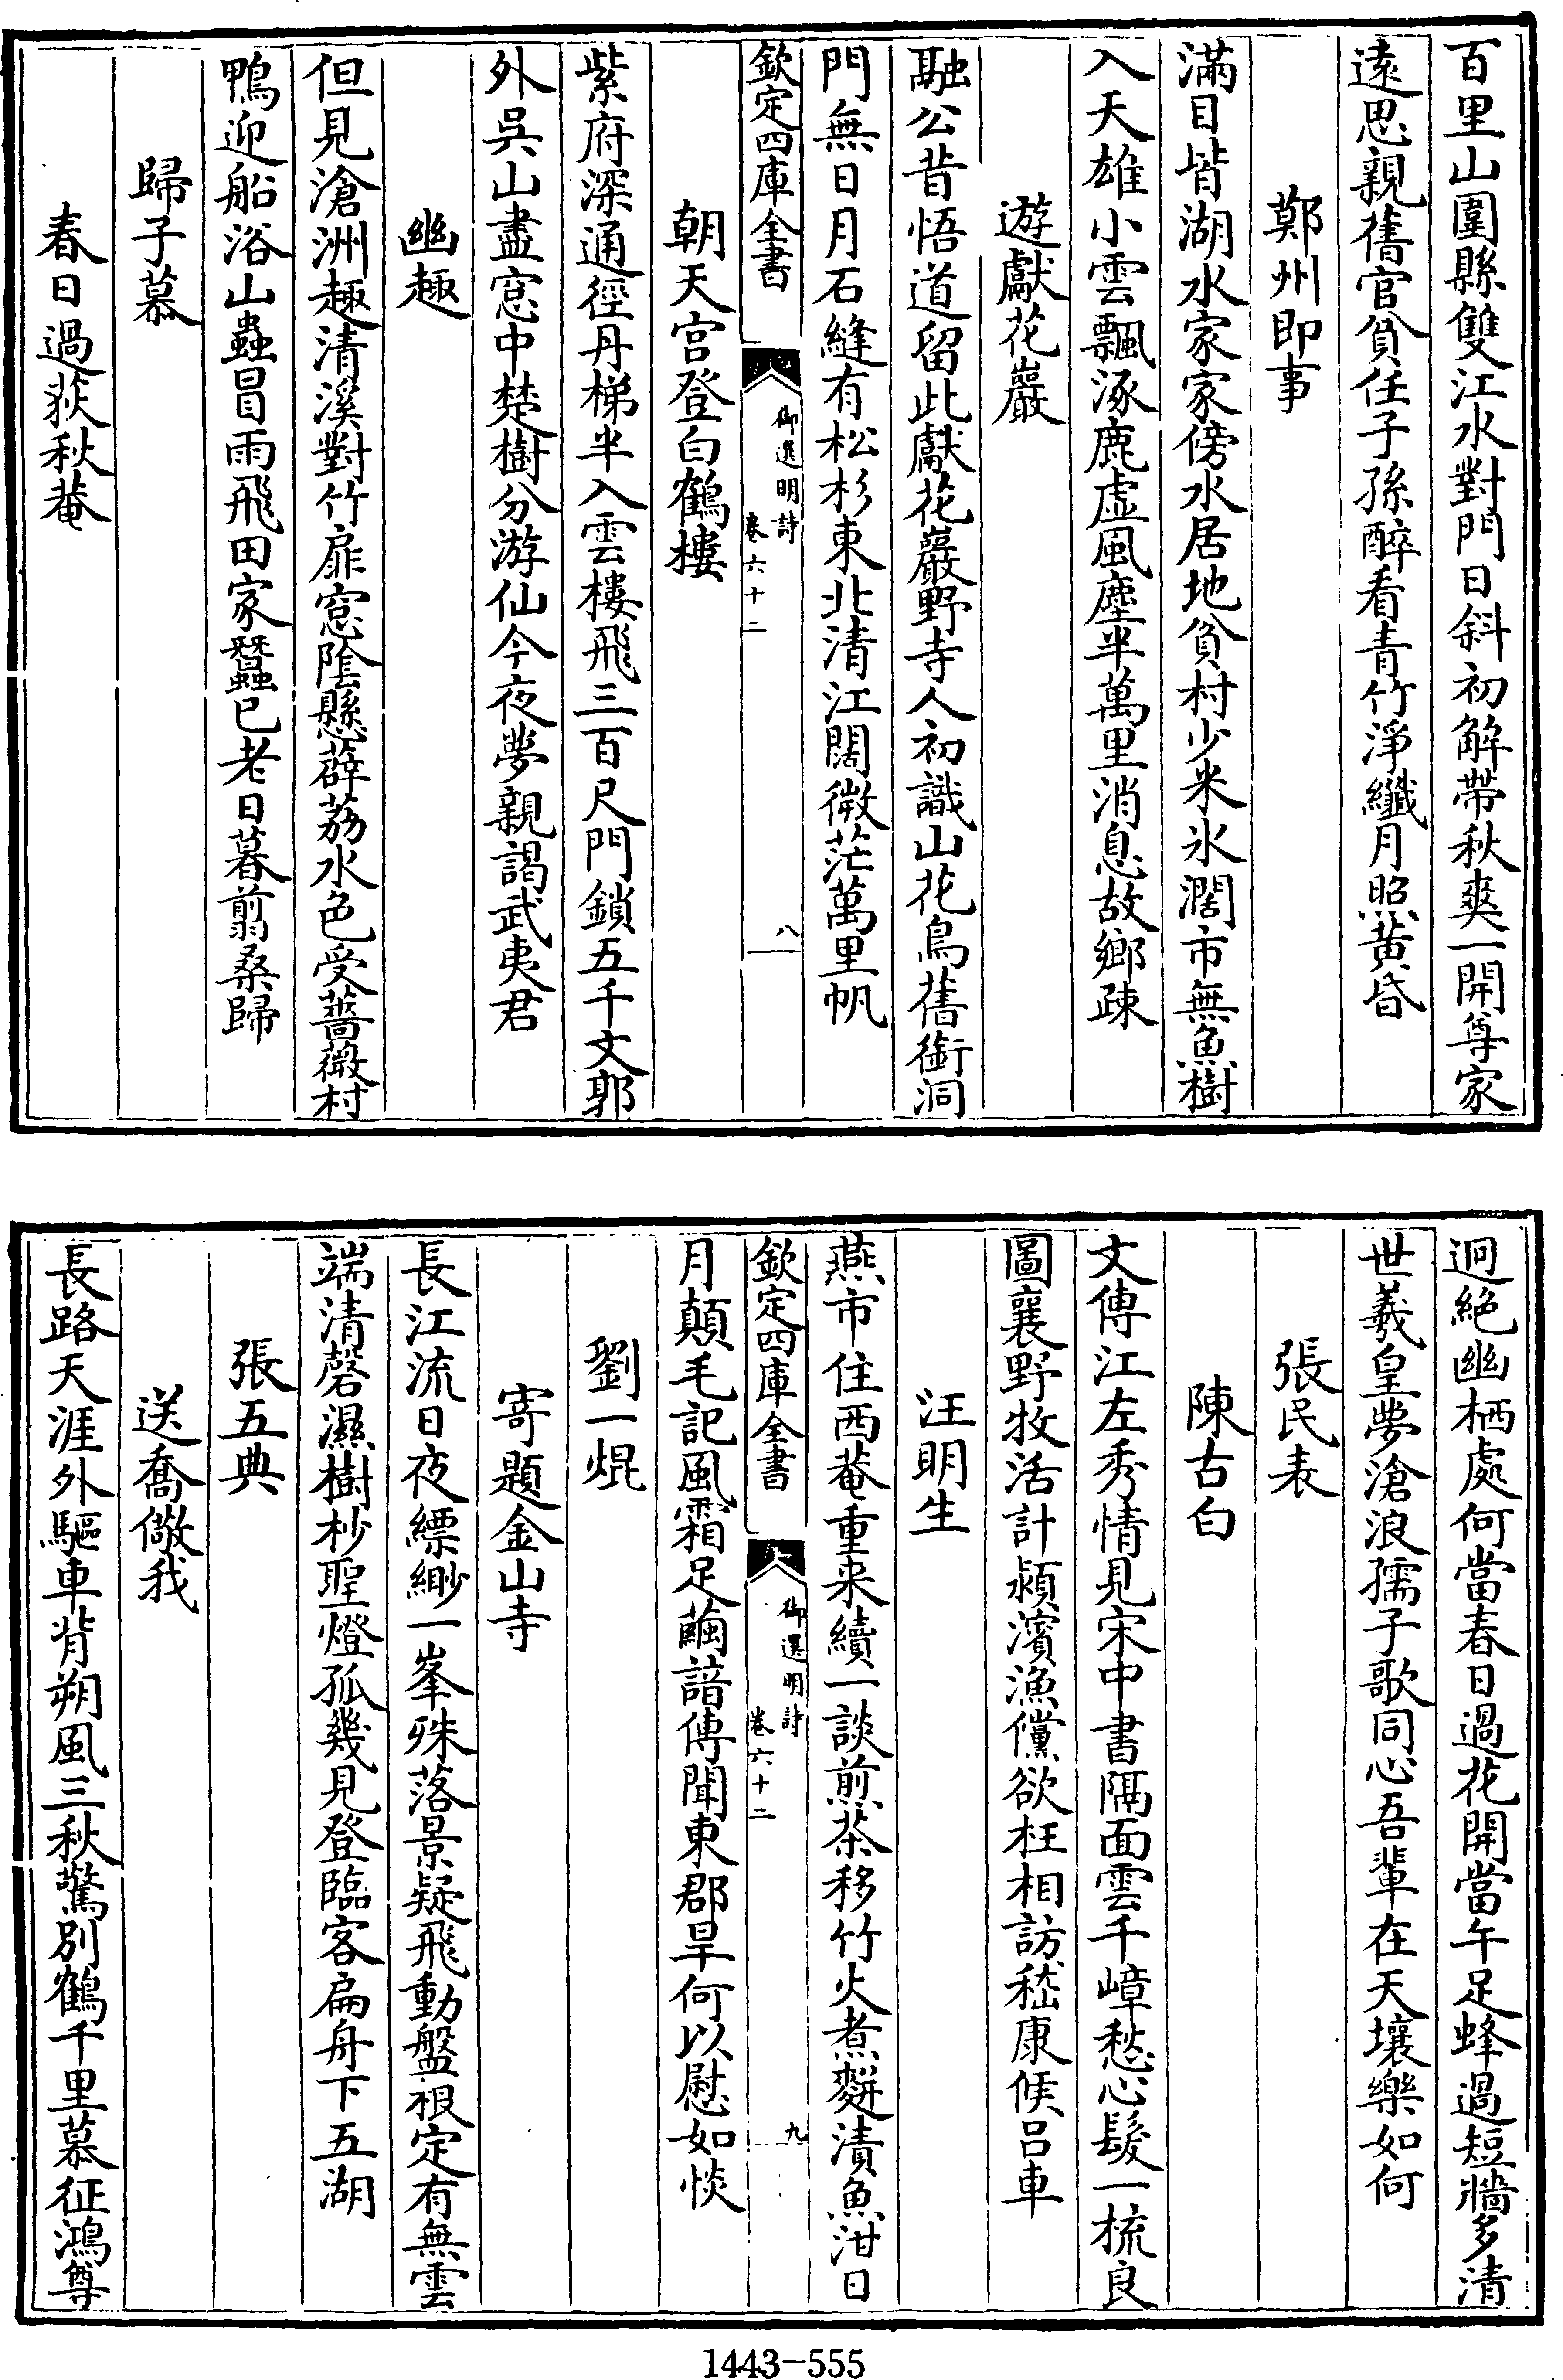 百里山圍縣雙江水對門日斜初解帶秋爽一開尊家
遠思親舊官貧任子孫醉看青竹淨纖月照黃昏
鄭州即事
滿目皆湖水家家傍水居地貧村少米氷濶市無魚樹
入天雄小雲飄涿鹿虛風塵半萬里消息故鄉疎
遊獻花巖
融公昔悟道留此獻花巖野寺人初識山花鳥舊銜洞
門無日月石縫有松杉東北清江闊微茫萬里帆
欽定四庫全書
御選明詩
卷六十二
八
朝天宮登白鶴樓
紫府深通徑丹梯半入雲樓飛三百尺門鎖五千文郭
外吳山盡窓中楚樹分游仙今夜夢親謁武夷君
幽趣
但見滄洲趣清溪對竹扉窓陰懸薜荔水色受薔薇村
鴨迎船浴山蟲冒雨飛田家蠶已老日暮翦桑歸
歸子慕
春日過荻秋菴
迥絕幽栖處何當春日過花開當午足蜂過短牆多清
世羲皇夢滄浪孺子歌同心吾輩在天壤樂如何
張民表
陳古白
文傳江左秀情見宋中書隔面雲千嶂愁心髮一梳良
圖襄野牧活計潁濱漁儻欲枉相訪嵇康候呂車
汪明生
燕市住西菴重来續一談煎茶移竹火煮麪漬魚泔日
欽定四庫全書
御選明詩
卷六十二
九
月顛毛記風霜足繭諳傳聞東郡旱何以慰如惔
劉一焜
寄題金山寺
長江流日夜縹緲一峯殊落景疑飛動盤根定有無雲
端清磬濕樹杪聖燈孤幾見登臨客扁舟下五湖
張五典
送喬儆我
長路天涯外驅車背朔風三秋驚別鶴千里慕征鴻尊
1443-555